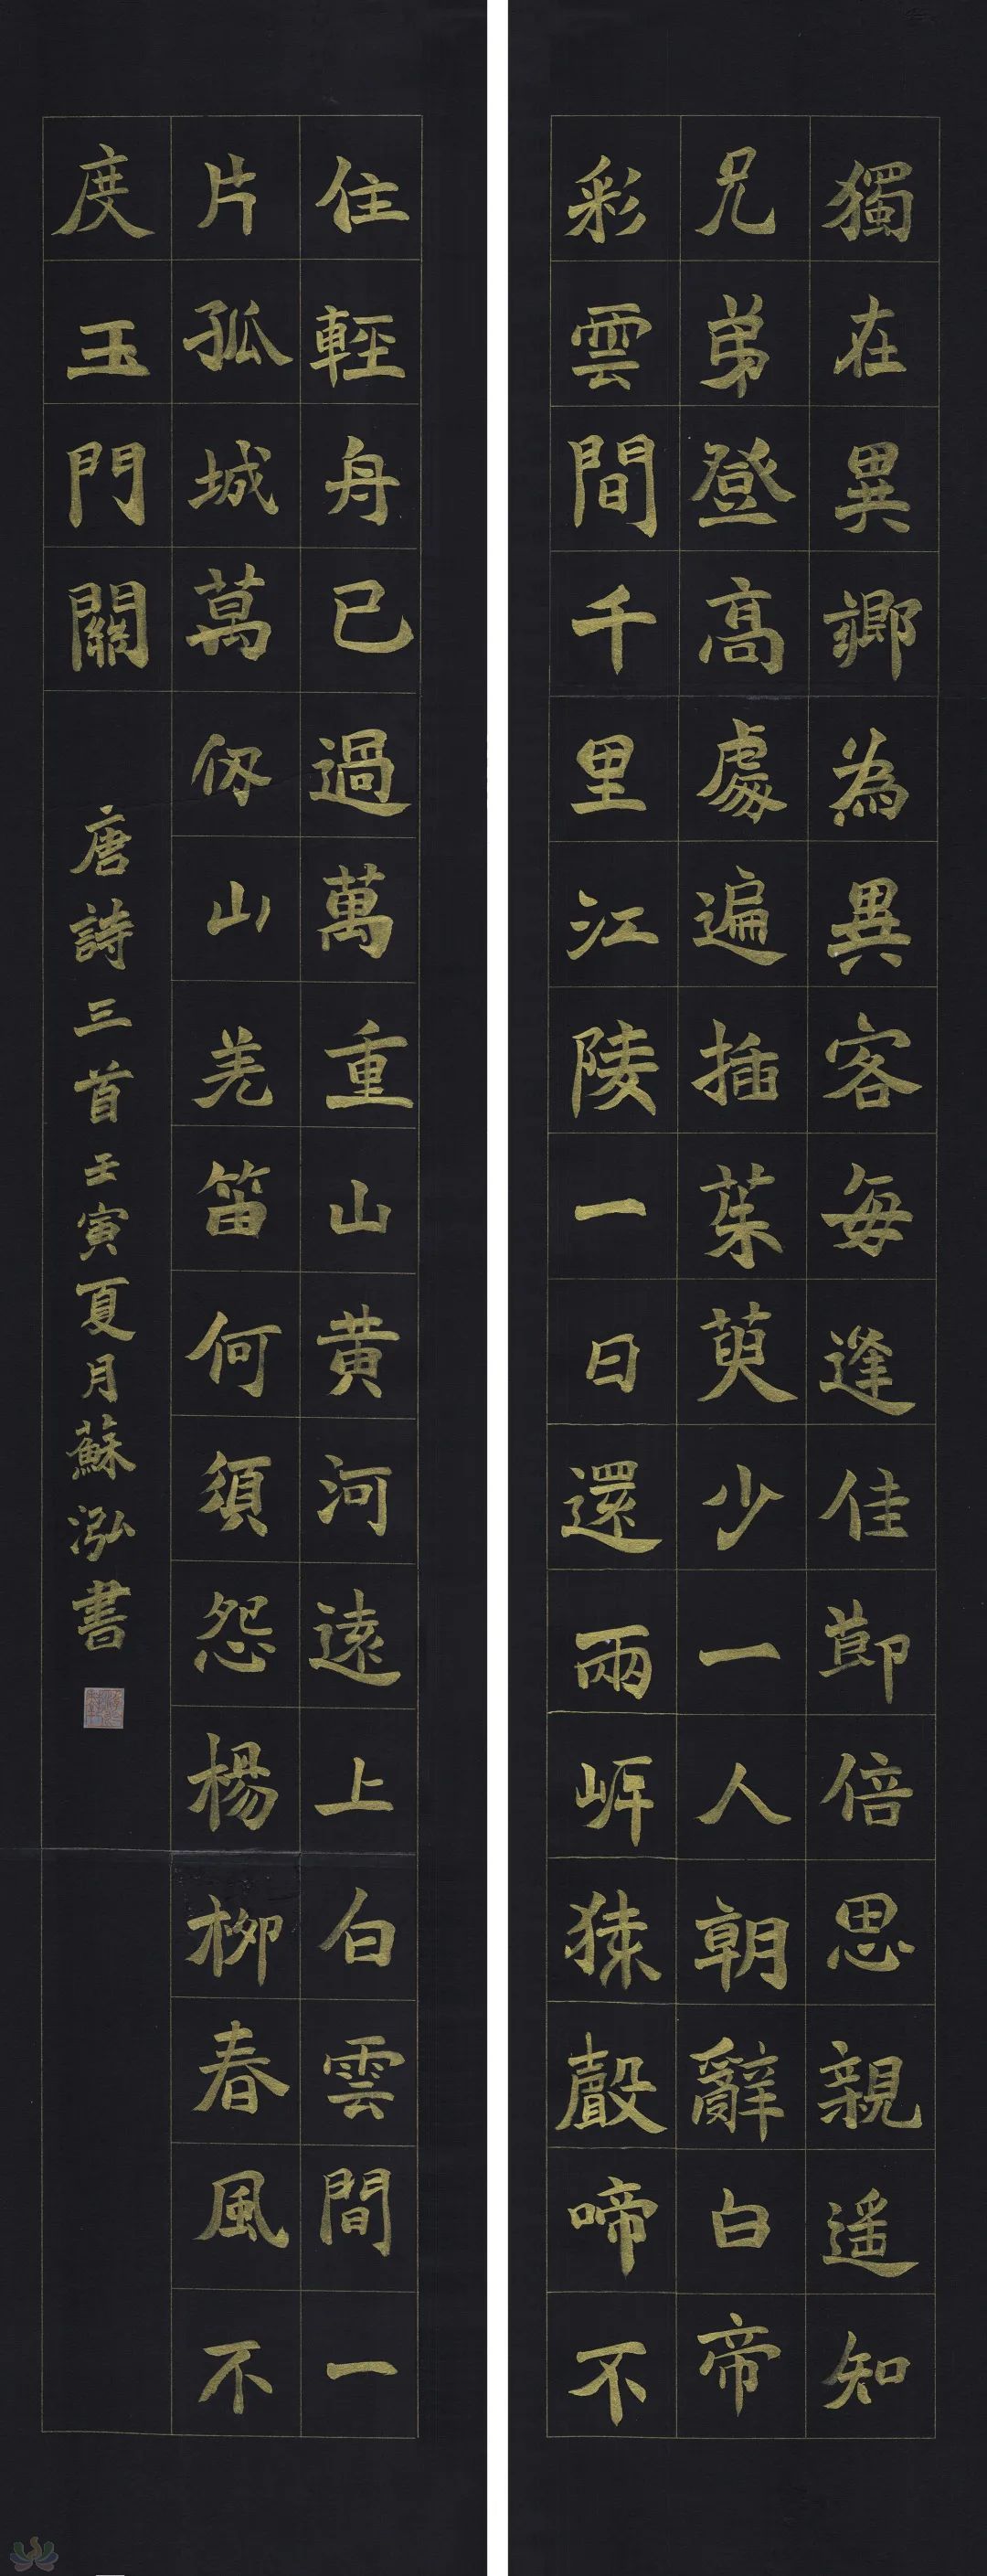 獨在異鄉為異客每逢佳節倍思親遥知
兄弟登高處遍插茱萸少一人朝辭白帝
彩雲間千里江陵一日還兩岸猿聲啼不
住輕舟已過萬重山黄河遠上白雲間一
片孤城萬仞山羌笛何須怨楊柳春風不
度玉門關
唐詩三首壬寅夏月蘇泓書